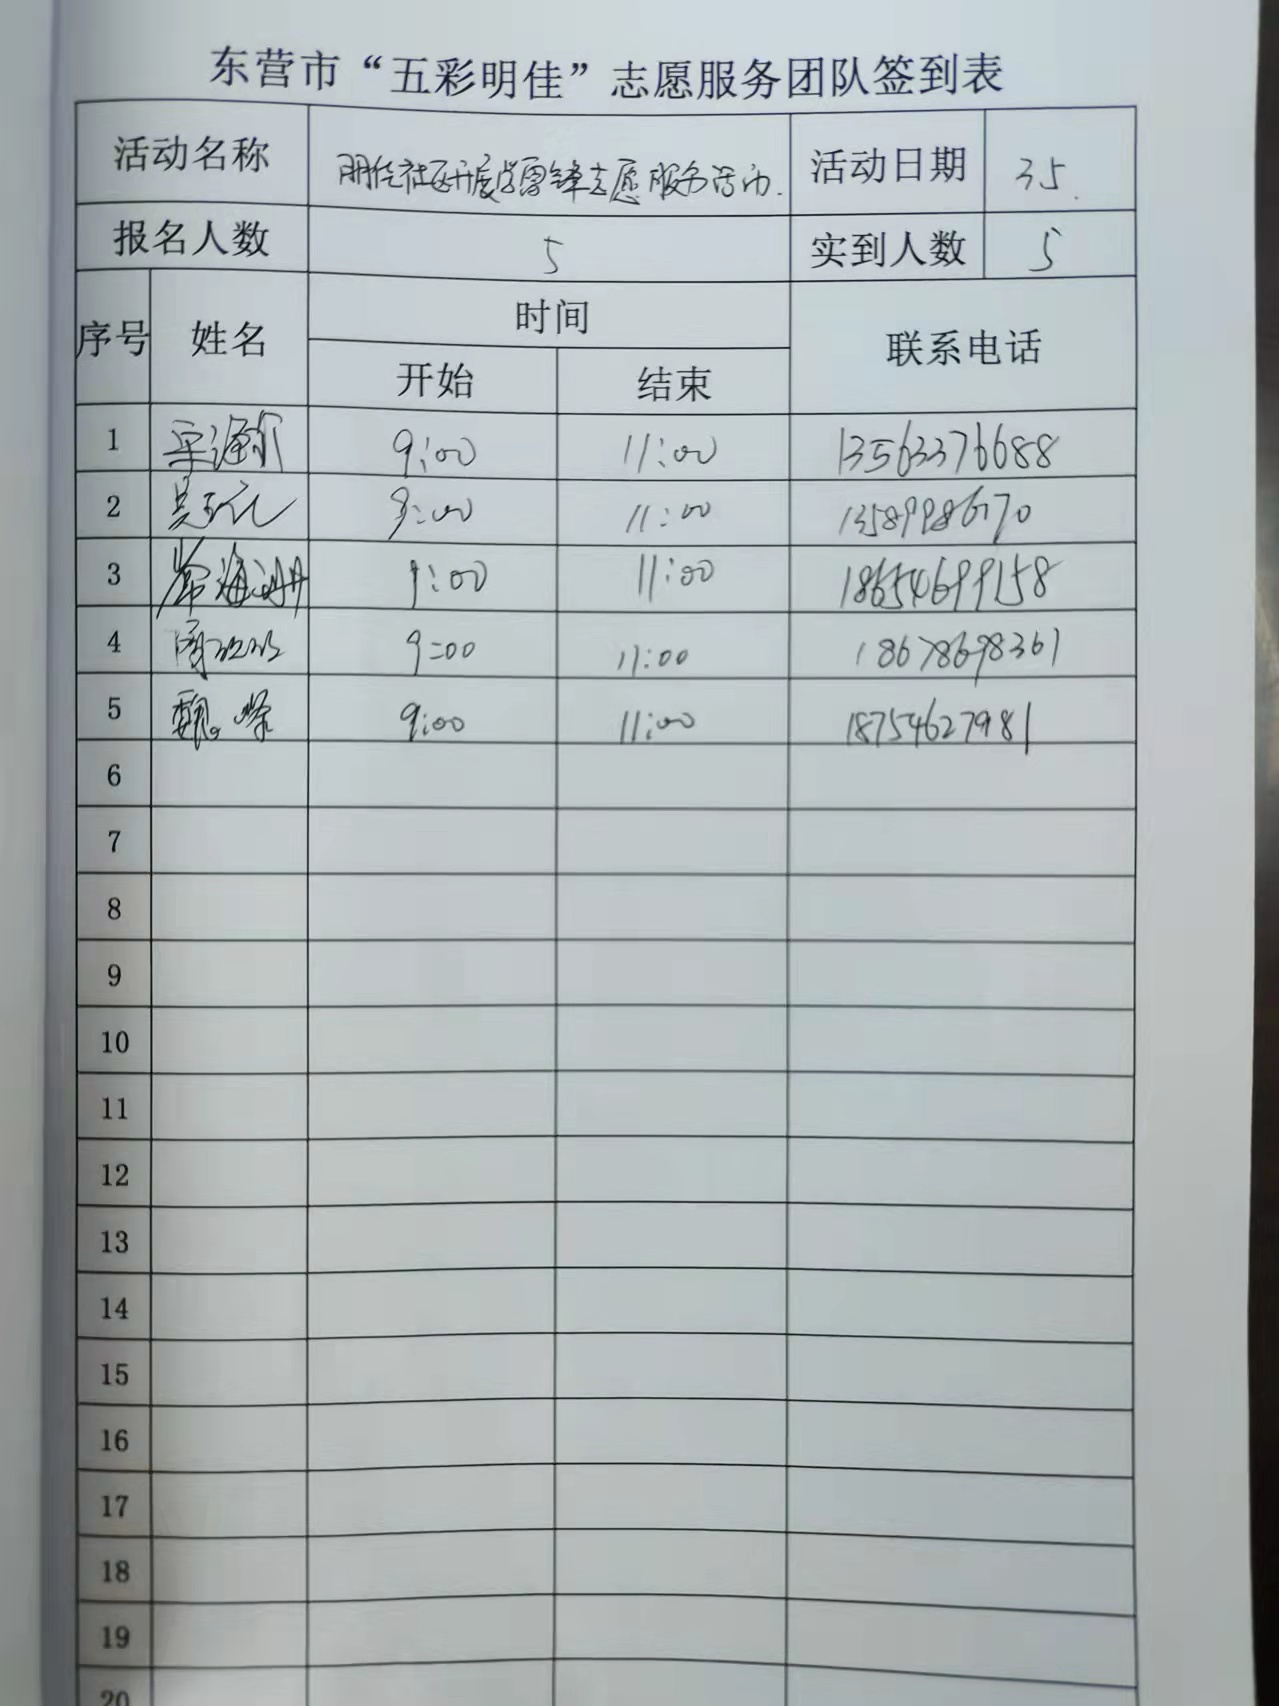 东营市“五彩明佳”志愿服务团队签到表
活动名称 明佳社区开展学雷锋志愿服务活动. 活动日期 3.5.
报名人数 5 实到人数 5
序号 姓名 时间 联系电话
开始 结束
1 9:00 11:00 13563376688
2 9:00 11:00
3 9:00 11:00 18654699158
4 9:00 11:00 18678698361
5 魏 9:00 11:00 18754627981
6
7
8
9
10
11
12
13
14
15
16
17
18
19
20